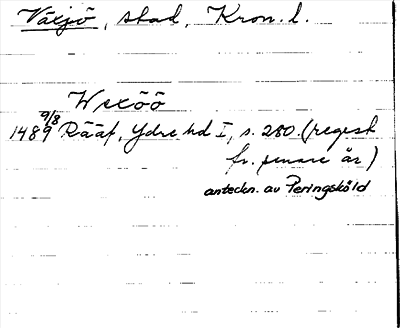 Växjö, stad, Kron. l.
Wexöö
9/8
1489 Rääf, Ydre hd I, s. 280. (regest
fr. senare år)
anteckn. av Peringsköld